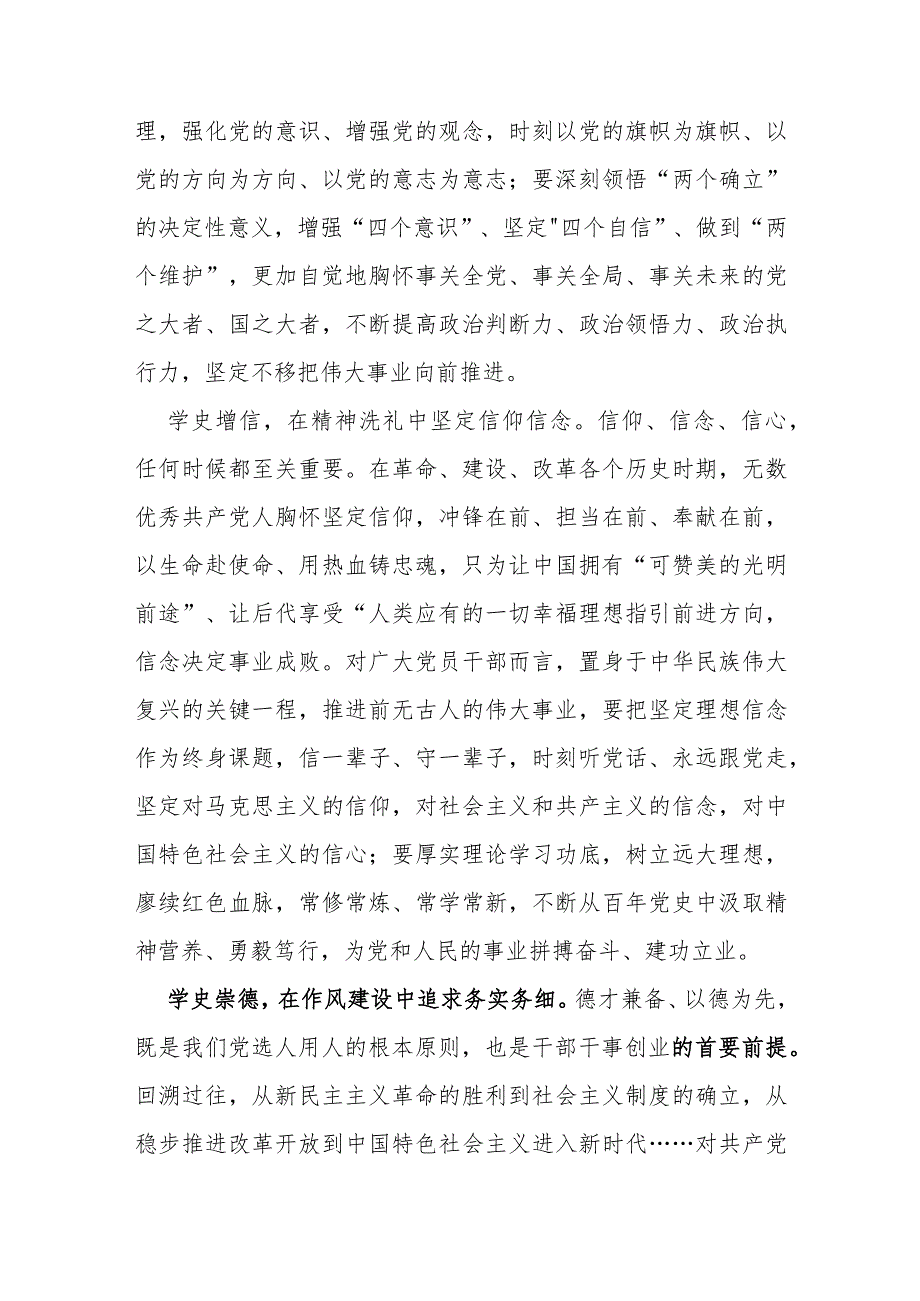 理，强化党的意识、增强党的观念，时刻以党的旗帜为旗帜、以
党的方向为方向、以党的意志为意志；要深刻领悟“两个确立”
的决定性意义，增强“四个意识”、坚定"四个自信”、做到“两
个维护”，更加自觉地胸怀事关全党、事关全局、事关未来的党
之大者、国之大者，不断提高政治判断力、政治领悟力、政治执
行力，坚定不移把伟大事业向前推进。
学史增信，在精神洗礼中坚定信仰信念。信仰、信念、信心，
任何时候都至关重要。在革命、建设、改革各个历史时期，无数
优秀共产党人胸怀坚定信仰，冲锋在前、担当在前、奉献在前，
以生命赴使命、用热血铸忠魂，只为让中国拥有“可赞美的光明
前途”、让后代享受“人类应有的一切幸福理想指引前进方向，
信念决定事业成败。对广大党员干部而言，置身于中华民族伟大
复兴的关键一程，推进前无古人的伟大事业，要把坚定理想信念
作为终身课题，信一辈子、守一辈子，时刻听党话、永远跟党走，
坚定对马克思主义的信仰，对社会主义和共产主义的信念，对中
国特色社会主义的信心；要厚实理论学习功底，树立远大理想，
廖续红色血脉，常修常炼、常学常新，不断从百年党史中汲取精
神营养、勇毅笃行，为党和人民的事业拼搏奋斗、建功立业。
学史崇德，在作风建设中追求务实务细。德才兼备、以德为先，
既是我们党选人用人的根本原则，也是干部干事创业的首要前提。
回溯过往，从新民主主义革命的胜利到社会主义制度的确立，从
稳步推进改革开放到中国特色社会主义进入新时代……对共产党